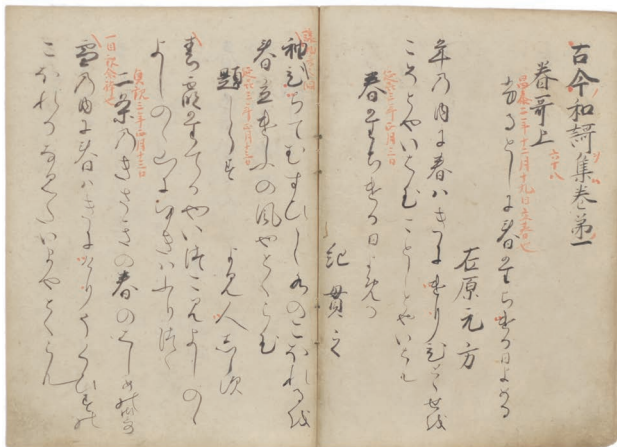 古今和謌集巻第一
春哥上
六十八
ふるとしに春たちける日よめる
在原元方
年乃内に春ハきにけりひとゝせを
こそとやいはむことしとやいはん
春たちける日よめる
紀貫之
袖ひちてむすひし水のこほれるを
春立けふの風やとくらむ
題しらす　よみ人しらす
春霞たてるやいつこみよしのゝ
よしのゝ山にゆきハふりつゝ
二条乃きさきの春のはしめの御哥
雪乃内に春ハきにけりうくひすの
こほれるなみたいまやとくらん